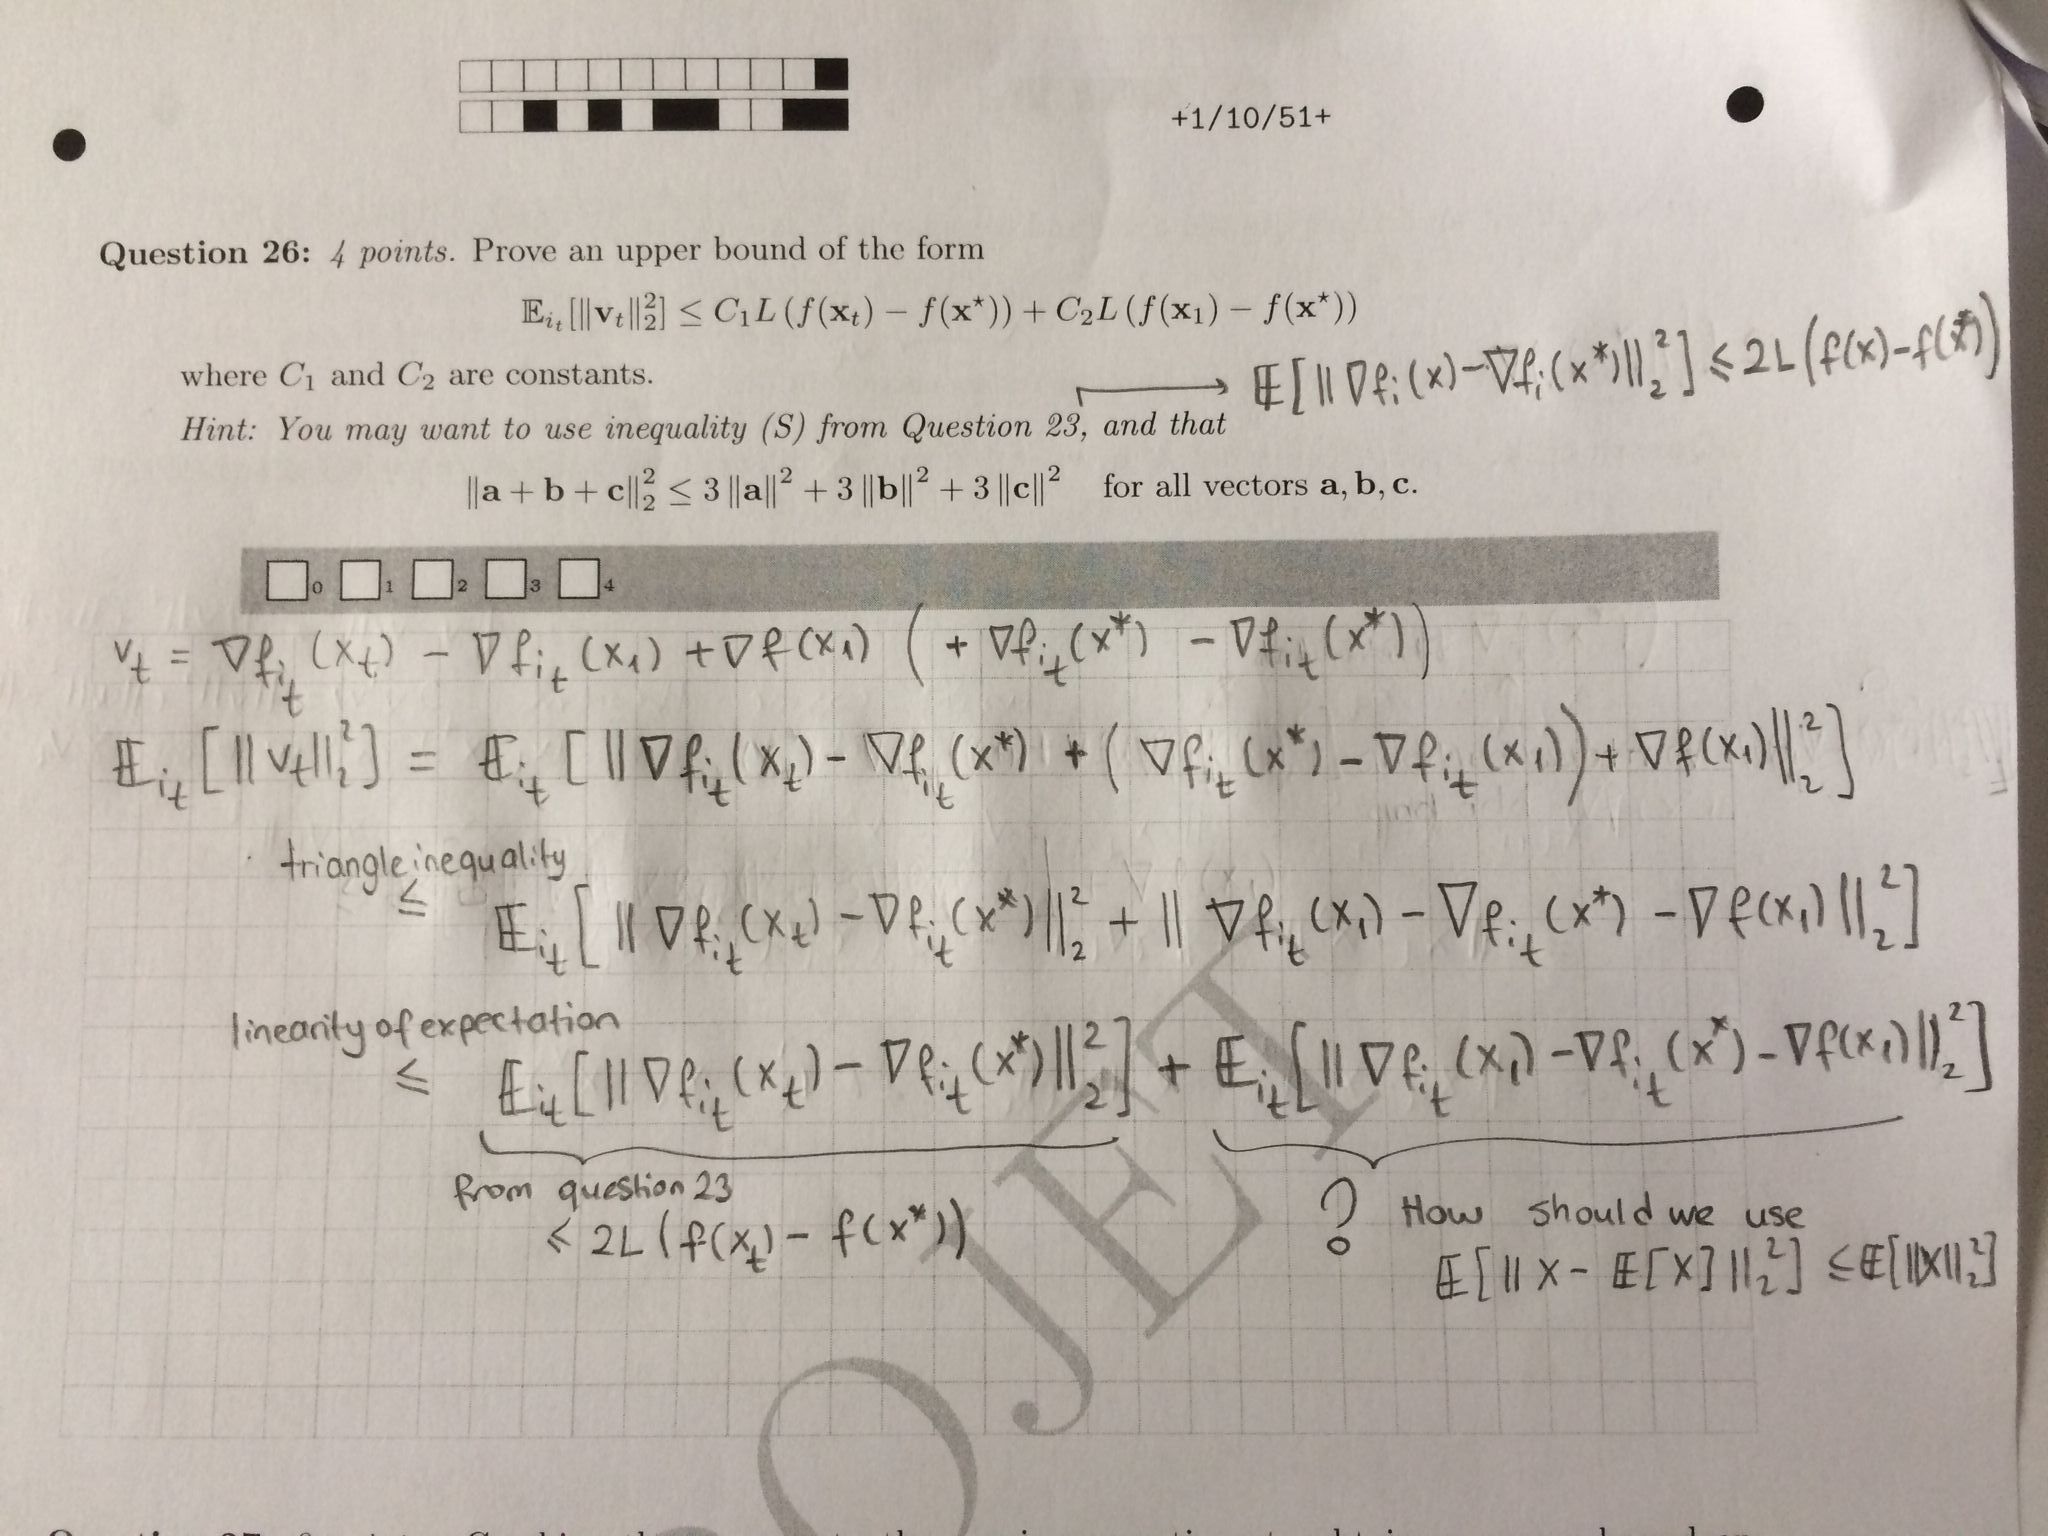 +1/10/51+
Question 26: 4 points. Prove an upper bound of the form
𝔼_{i_t}[‖v_t‖₂²] ≤ C₁L (f(x_t) − f(x⋆)) + C₂L (f(x₁) − f(x⋆))
where C₁ and C₂ are constants.
𝔼[‖∇f_i(x) − ∇f_i(x*)‖₂²] ≤ 2L(f(x) − f(x*))
Hint: You may want to use inequality (S) from Question 23, and that
‖a + b + c‖₂² ≤ 3‖a‖² + 3‖b‖² + 3‖c‖² for all vectors a, b, c.
0 1 2 3 4
v_t = ∇f_{i_t}(x_t) − ∇f_{i_t}(x₁) + ∇f(x₁) (+ ∇f_{i_t}(x*) − ∇f_{i_t}(x*))
𝔼_{i_t}[‖v_t‖₂²] = 𝔼_{i_t}[‖∇f_{i_t}(x_t) − ∇f_{i_t}(x*) + (∇f_{i_t}(x*) − ∇f_{i_t}(x₁)) + ∇f(x₁)‖₂²]
triangle inequality
≤ 𝔼_{i_t}[‖∇f_{i_t}(x_t) − ∇f_{i_t}(x*)‖₂² + ‖∇f_{i_t}(x₁) − ∇f_{i_t}(x*) − ∇f(x₁)‖₂²]
linearity of expectation
≤ 𝔼_{i_t}[‖∇f_{i_t}(x_t) − ∇f_{i_t}(x*)‖₂²] + 𝔼_{i_t}[‖∇f_{i_t}(x₁) − ∇f_{i_t}(x*) − ∇f(x₁)‖₂²]
from question 23
≤ 2L(f(x_t) − f(x*))
? How should we use
𝔼[‖X − 𝔼[X]‖₂²] ≤ 𝔼[‖X‖₂²]
OJET